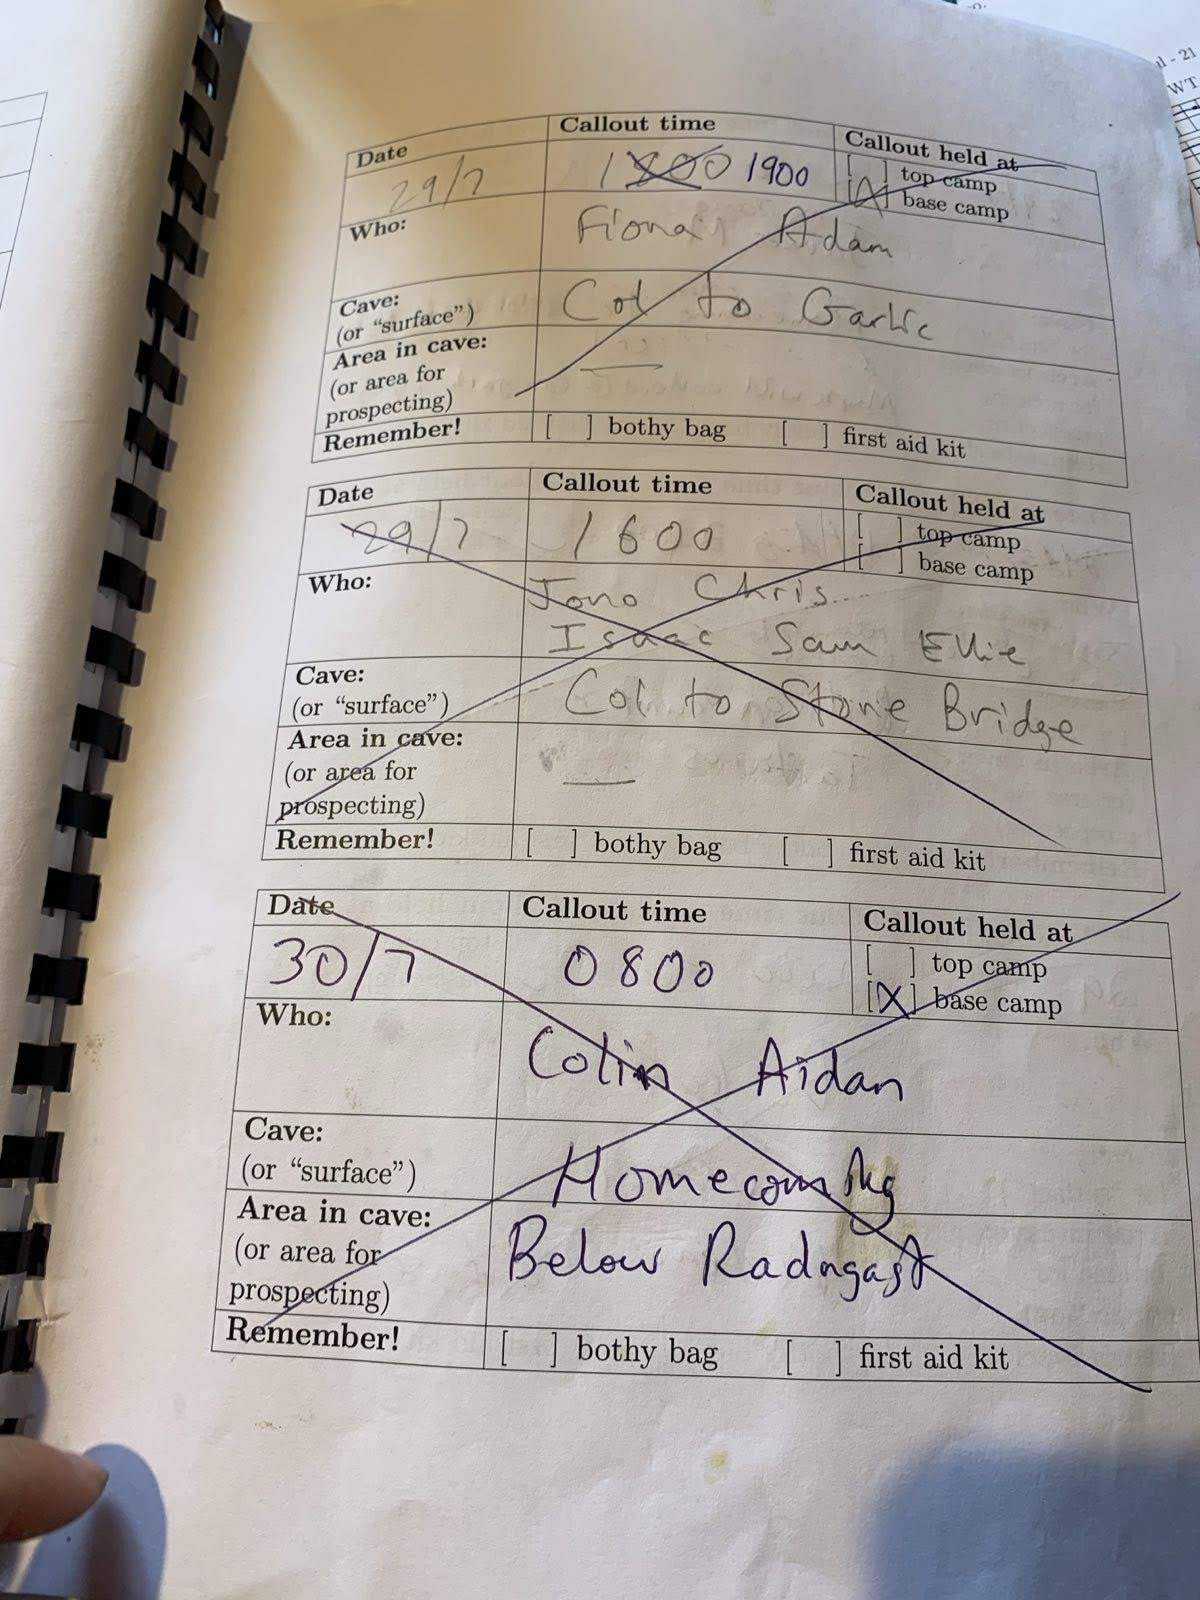 Date
Callout time
Callout held at
29/7
1800 1900
[ ] top camp
[X] base camp
Who:
Fiona Adam
Cave:
(or “surface”)
Col to Garlic
Area in cave:
(or area for
prospecting)
—
Remember!
[ ] bothy bag [ ] first aid kit
Date
Callout time
Callout held at
29/7
1600
[ ] top camp
[ ] base camp
Who:
Jono Chris
Isaac Sam Ellie
Cave:
(or “surface”)
Col to Stone Bridge
Area in cave:
(or area for
prospecting)
—
Remember!
[ ] bothy bag [ ] first aid kit
Date
Callout time
Callout held at
30/7
0800
[ ] top camp
[X] base camp
Who:
Colin Aidan
Cave:
(or “surface”)
Homecoming
Area in cave:
(or area for
prospecting)
Below Radagast
Remember!
[ ] bothy bag [ ] first aid kit